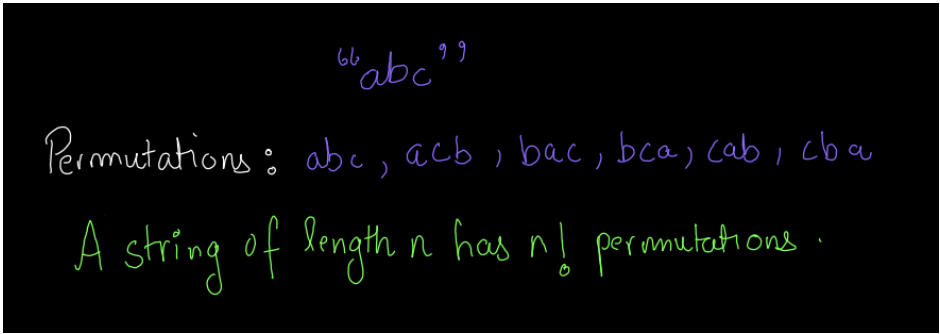 “abc”
Permutations: abc, acb, bac, bca, cab, cba
A string of length n has n! permutations.